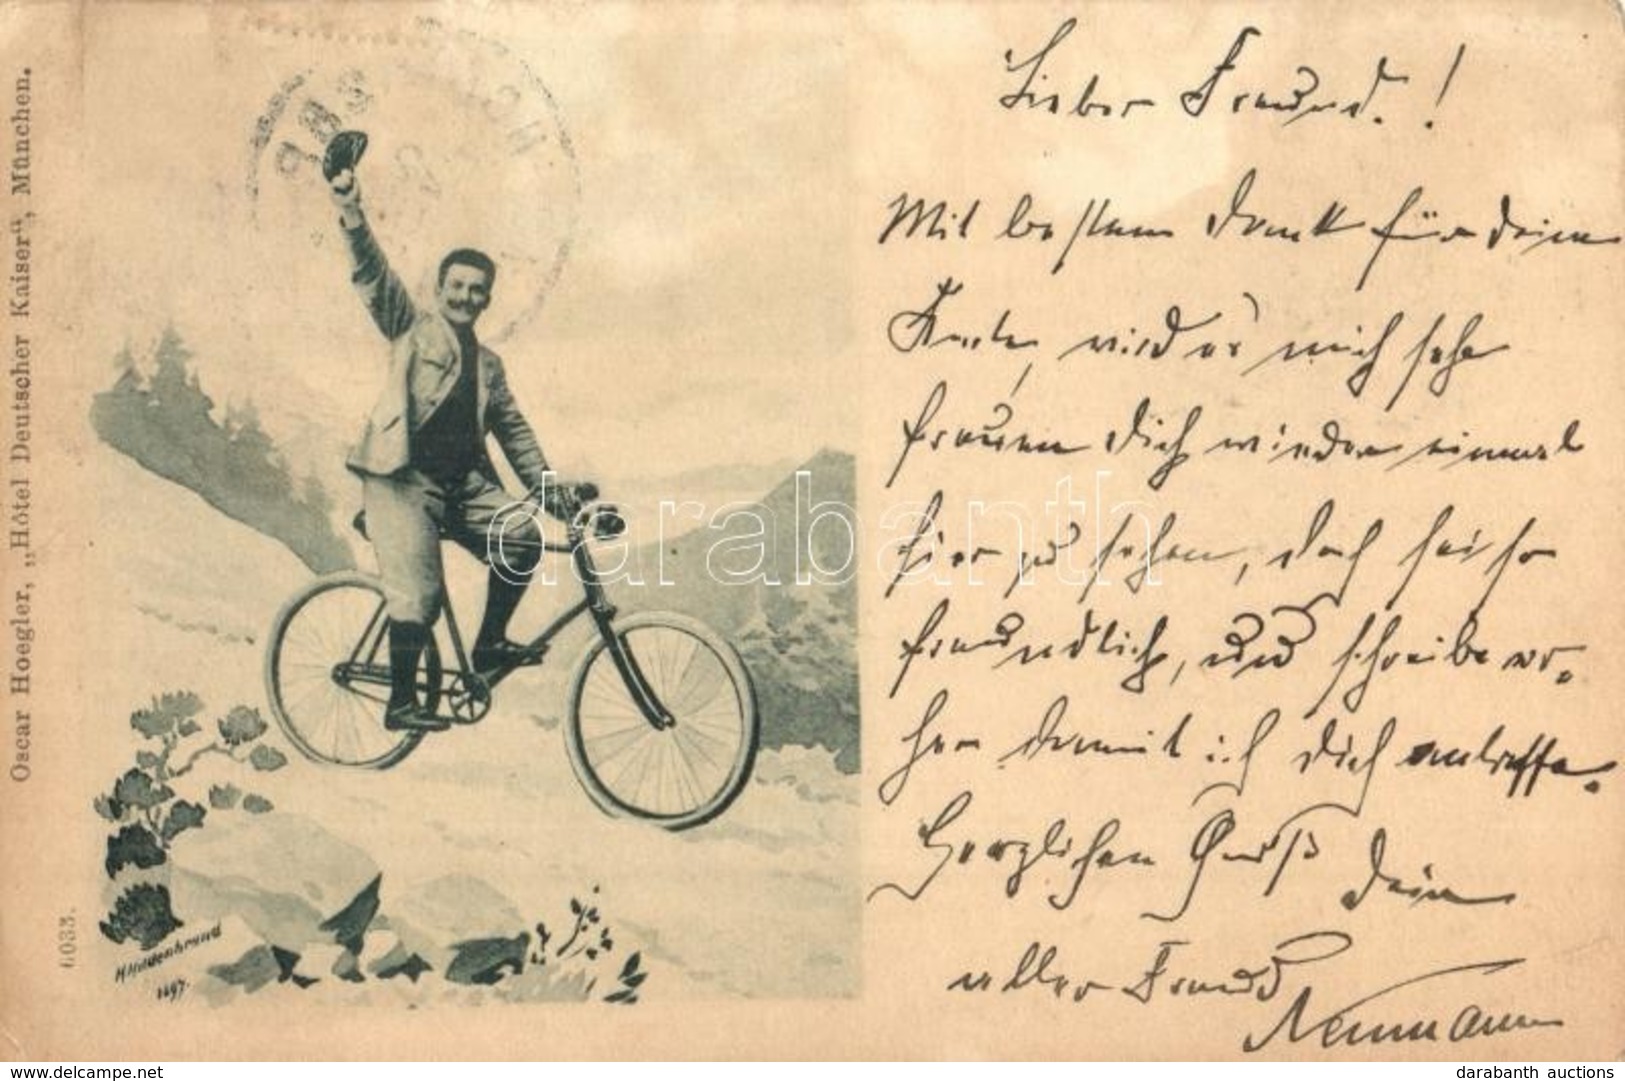 Oscar Hoegler, „Hôtel Deutscher Kaiser“, München.
6033.
Hildenbrand
1897.
Lieber Freund.!
Mit besten Dank für Deine
Karte, wird es mich sehr
freuen Dich wieder einmal
hier zu sehen, doch sei so
freundlich, und schreibe vor-
her damit ich Dich antreffe.
Herzlichen Gruß Dein
alter Freund
Neumann
darabanth
the-bidder.com
darabanth auctions